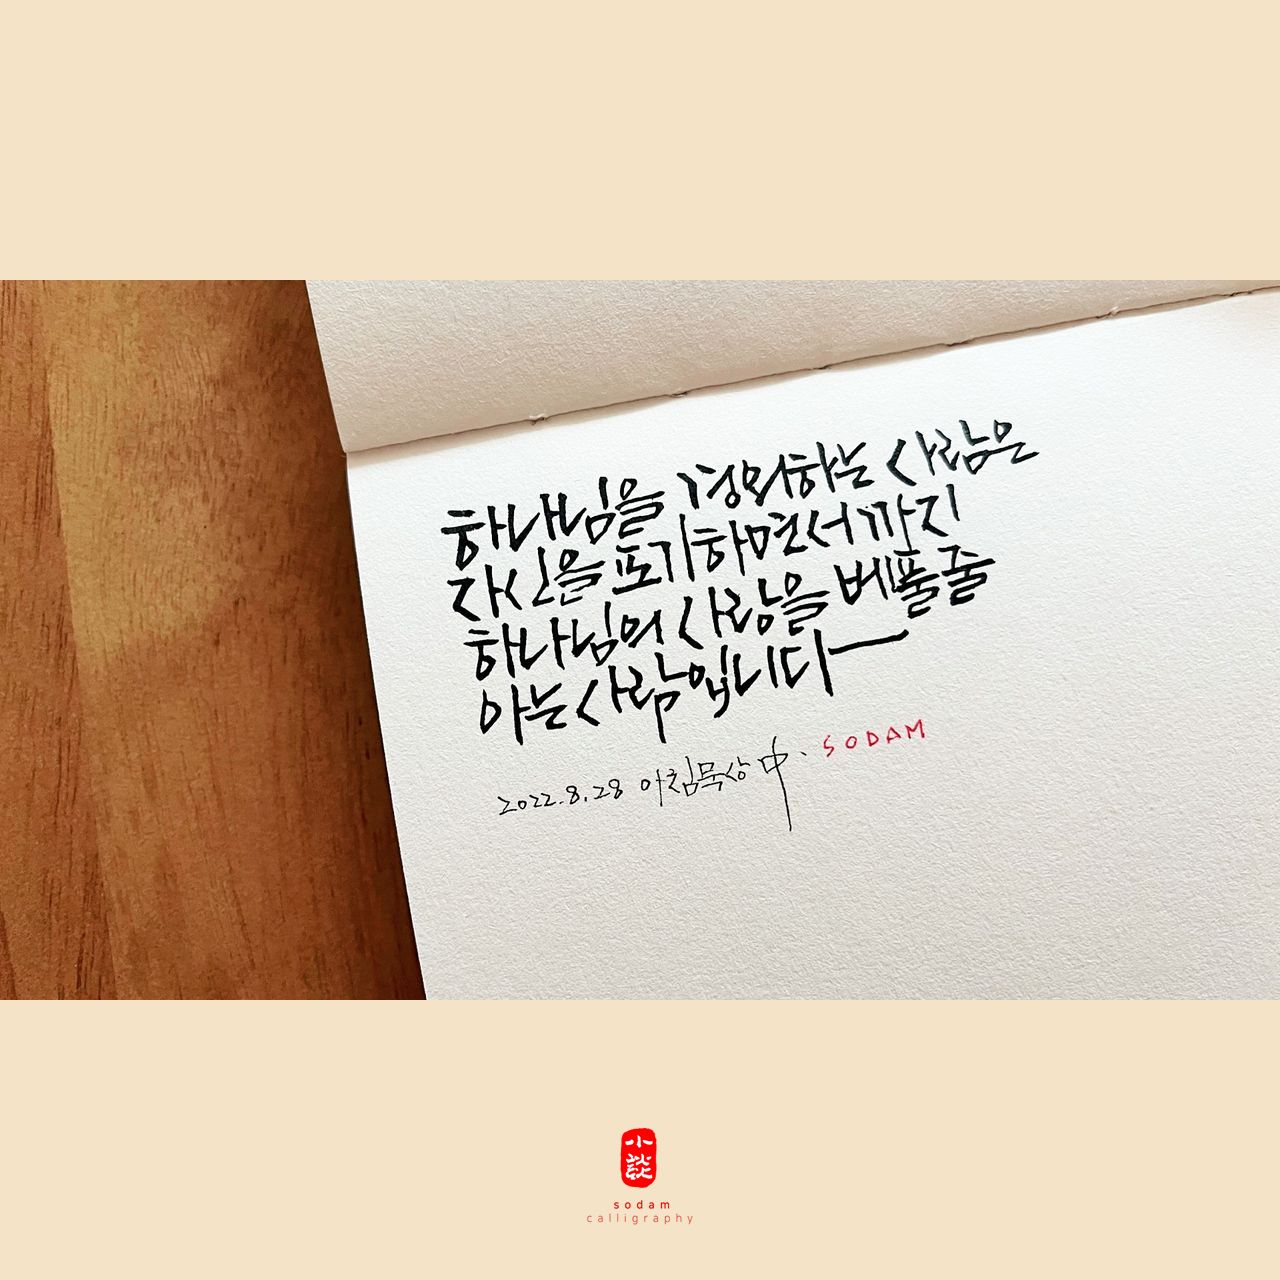 하나님을 경외하는 사람은
자신을 포기하면서까지
하나님의 사랑을 베풀줄
아는 사람입니다
2022.8.28 아침묵상 中. SODAM
小談
sodam
calligraphy